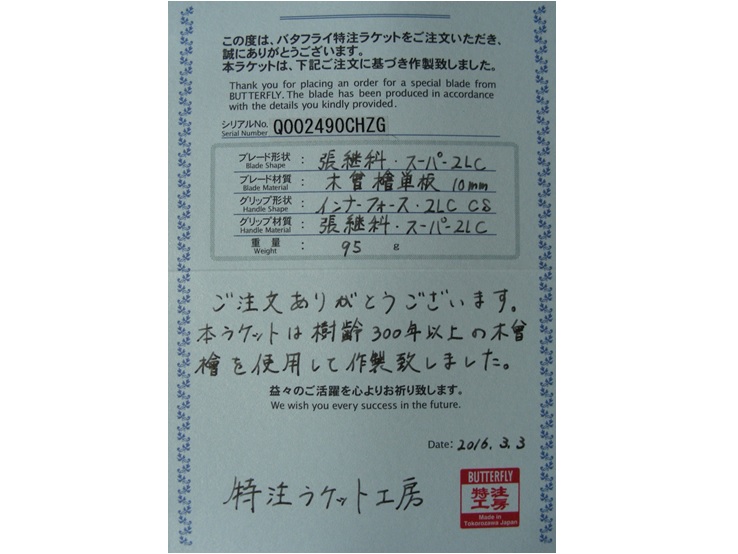 この度は、バタフライ特注ラケットをご注文いただき、
誠にありがとうございます。
本ラケットは、下記ご注文に基づき作製致しました。
Thank you for placing an order for a special blade from
BUTTERFLY. The blade has been produced in accordance
with the details you kindly provided.
シリアルNo. Q002490CHZG
Serial Number
ブレード形状 : 張継科・スーパーZLC
Blade Shape
ブレード材質 : 木曾檜単板 10mm
Blade Material
グリップ形状 : インナーフォース・ZLC CS
Handle Shape
グリップ材質 : 張継科・スーパーZLC
Handle Material
重量 : 95 g
Weight
ご注文ありがとうございます。
本ラケットは樹齢300年以上の木曾
檜を使用して作製致しました。
益々のご活躍を心よりお祈り致します。
We wish you every success in the future.
Date: 2016.3.3
特注ラケット工房
BUTTERFLY
特注
工房
Made in
Tokorozawa Japan